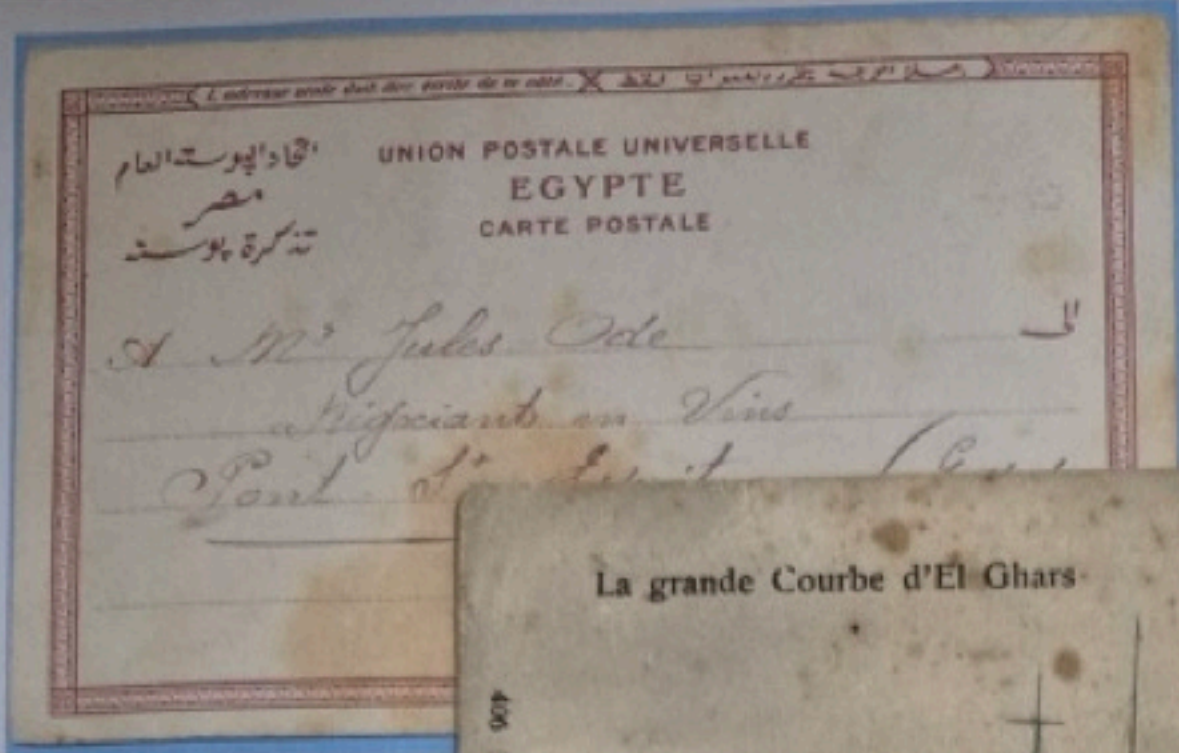 L'adresse seule doit être écrite de ce côté.
اتحاد البوستة العام
مصر
تذكرة بوستة
UNION POSTALE UNIVERSELLE
EGYPTE
CARTE POSTALE
A Mr Jules Ode
الى
Négociants en Vins
Pont St Esprit
La grande Courbe d'El Ghars
406